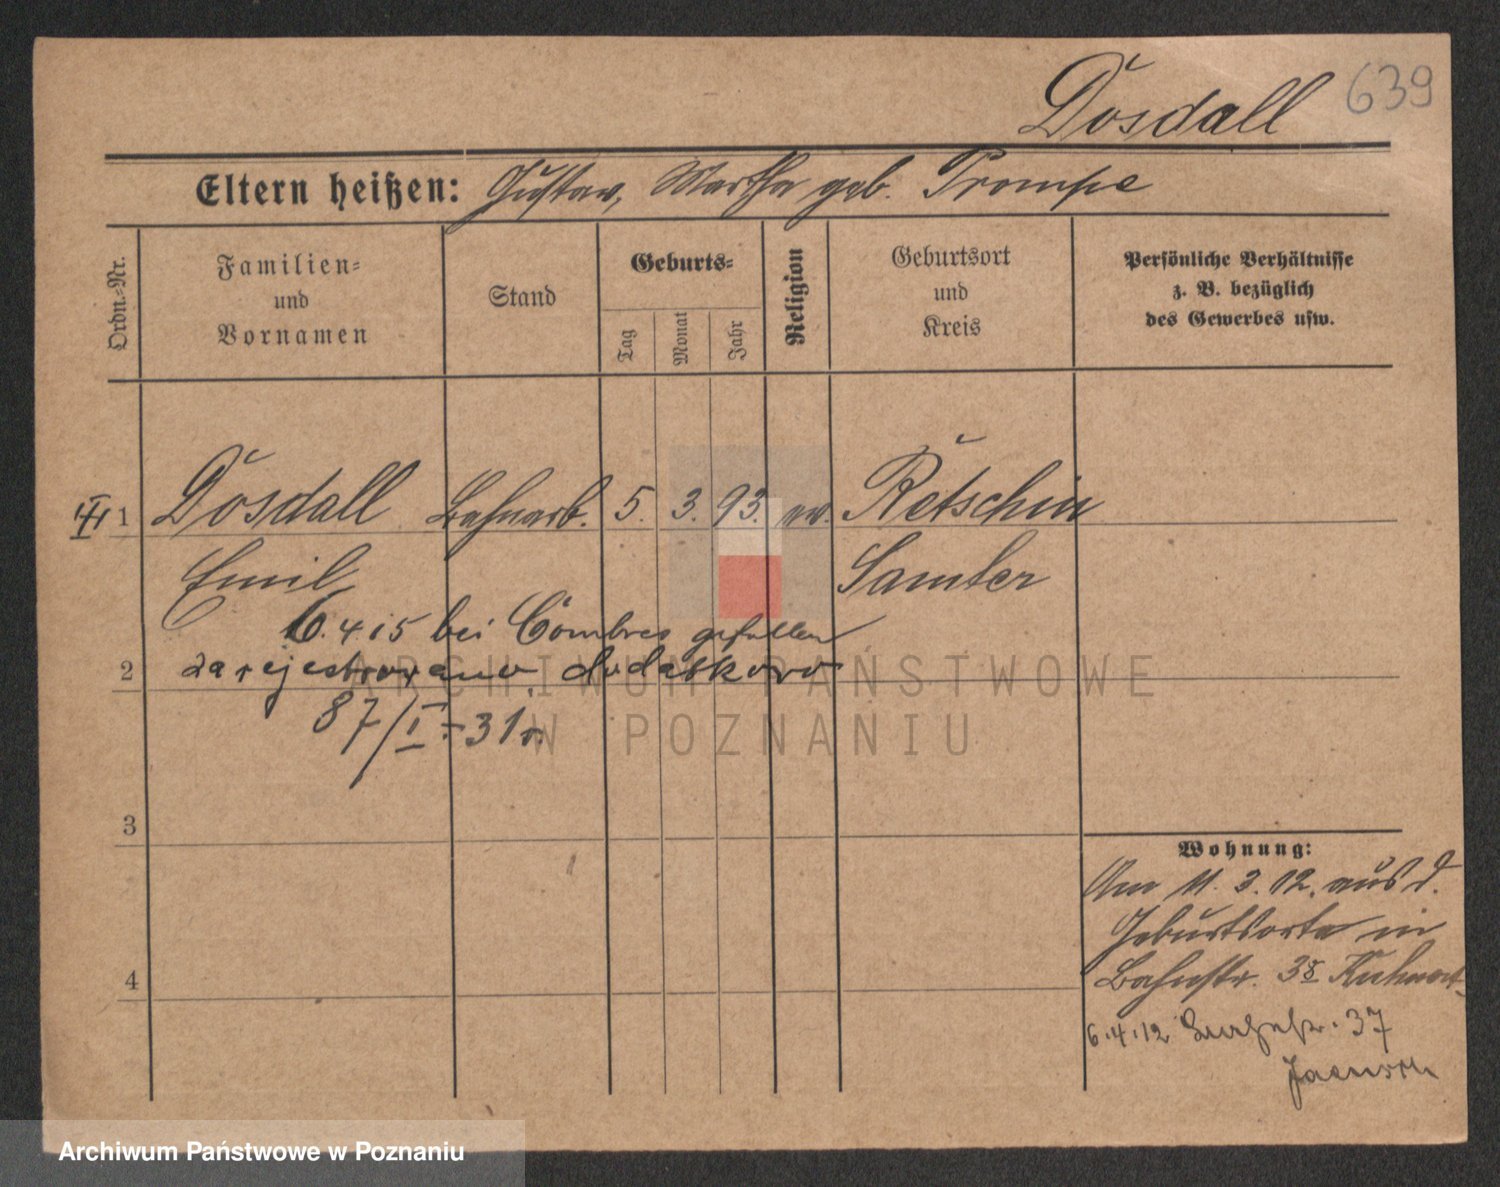 Dosdall 639
Eltern heißen: Gustav, Martha geb. Prompe
Ordn.-Nr.
Familien-
und
Vornamen
Stand
Geburts-
Tag
Monat
Jahr
Religion
Geburtsort
und
Kreis
Persönliche Verhältnisse
z. B. bezüglich
des Gewerbes usw.
1 Dosdall Bahnarb. 5. 3. 93. ev. Retschin
Emil Samter
6.4.15 bei Combres gefallen
2 zarejestrowano dodatkowo
87/I - 31 r.
3
4
Wohnung:
Am 11. 3. 12. aus d.
Geburtsorte in
Bahnstr. 38
6.4.12 37
ARCHIWUM PAŃSTWOWE
W POZNANIU
Archiwum Państwowe w Poznaniu